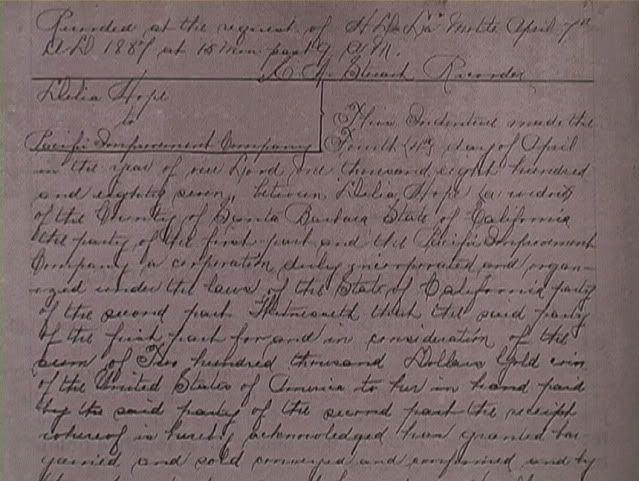 Recorded at the request of H L De La Motte April 7th
A.D 1887 at 15 min past 9 A.M.
Stewart Recorder
Delia Hope
to
Pacific Improvement Company
This Indenture made the
Fourth (4th) day of April
in the year of our Lord one thousand eight hundred
and eighty seven, between Delia Hope (a widow)
of the County of Santa Barbara State of California
the party of the first part and the Pacific Improvement
Company a corporation duly incorporated and organ-
ized under the laws of the State of California party
of the second part Witnesseth that the said party
of the first part for and in consideration of the
sum of Two hundred thousand Dollars Gold coin
of the United States of America to her in hand paid
by the said party of the second part the receipt
whereof is hereby acknowledged has granted bar-
gained and sold conveyed and confirmed and by